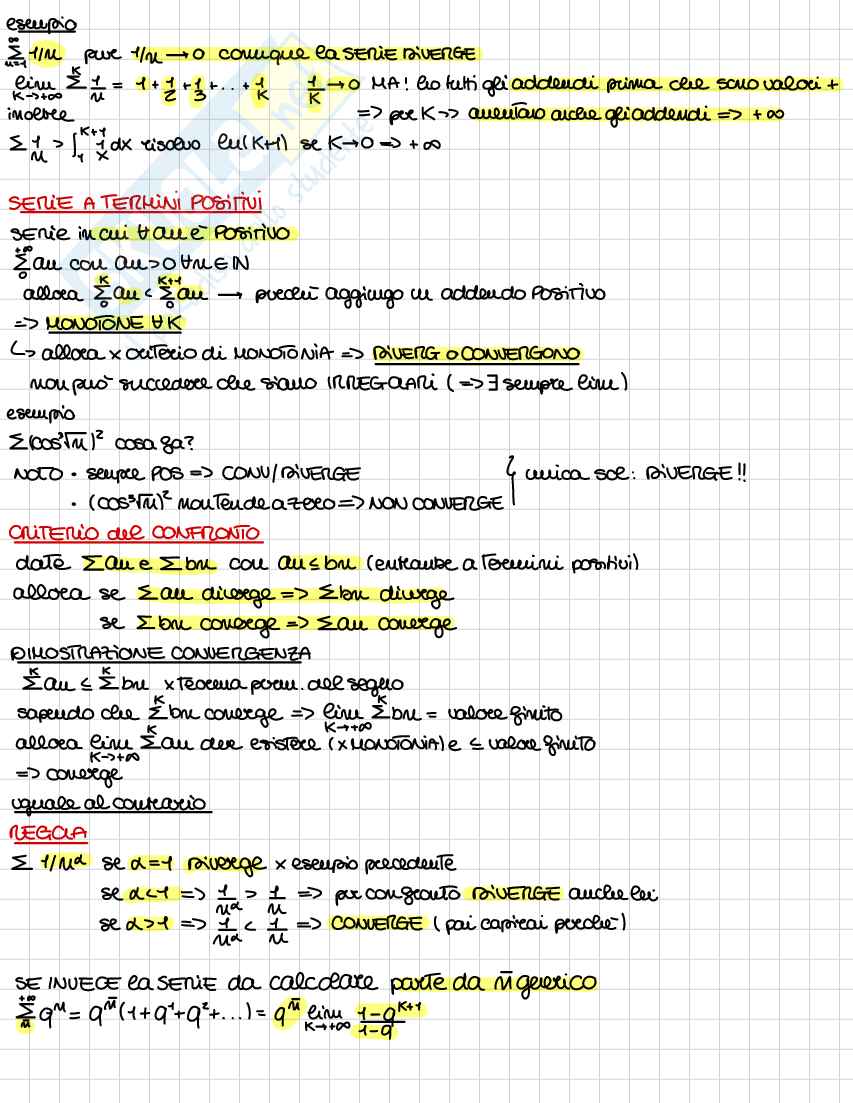 esempio
∞ Σ n=1 1/n pur 1/n → 0 comunque la SERIE DIVERGE
lim K→+∞ Σ^K 1/n = 1 + 1/2 + 1/3 + ... + 1/K 1/K → 0 MA! ho tutti gli addendi prima che sono valori +
inoltre => per K-> aumentano anche gli addendi => +∞
Σ 1/n > ∫_1^{K+1} 1/x dx risolvo ln(K+1) se K→0 => +∞
SERIE A TERMINI POSITIVI
serie in cui ∀ an è POSITIVO
Σ_0^{+∞} an con an>0 ∀n∈N
allora Σ_0^K an < Σ_0^{K+1} an → perché aggiungo un addendo POSITIVO
=> MONOTONE ∀K
↳ allora x criterio di MONOTONIA => DIVERG O CONVERGONO
non può succedere che siano IRREGOLARI (=> ∃ sempre lim)
esempio
Σ(cos³√n)² cosa fa?
NOTO • sempre POS => CONV/DIVERGE } unica sol: DIVERGE!!
• (cos³√n)² non tende a zero => NON CONVERGE
CRITERIO del CONFRONTO
date Σan e Σbn con an ≤ bn (entrambe a Termini positivi)
allora se Σan diverge => Σbn diverge
se Σbn converge => Σan converge
DIMOSTRAZIONE CONVERGENZA
Σ^K an ≤ Σ^K bn x Teorema perm. del segno
sapendo che Σ^K bn converge => lim K→+∞ Σ^K bn = valore finito
allora lim K→+∞ Σ^K an deve esistere (x MONOTONIA) e ≤ valore finito
=> converge
uguale al contrario
REGOLA
Σ 1/n^α se α=1 Diverge x esempio precedente
se α<1 => 1/n^α > 1/n => per confronto DIVERGE anche lei
se α>1 => 1/n^α < 1/n => CONVERGE (poi capirai perché)
SE INVECE la SERIE da calcolare parte da n̄ generico
Σ_n̄^{+∞} q^n = q^n̄ (1+q¹+q²+...) = q^n̄ lim K→+∞ (1-q^{K+1})/(1-q)